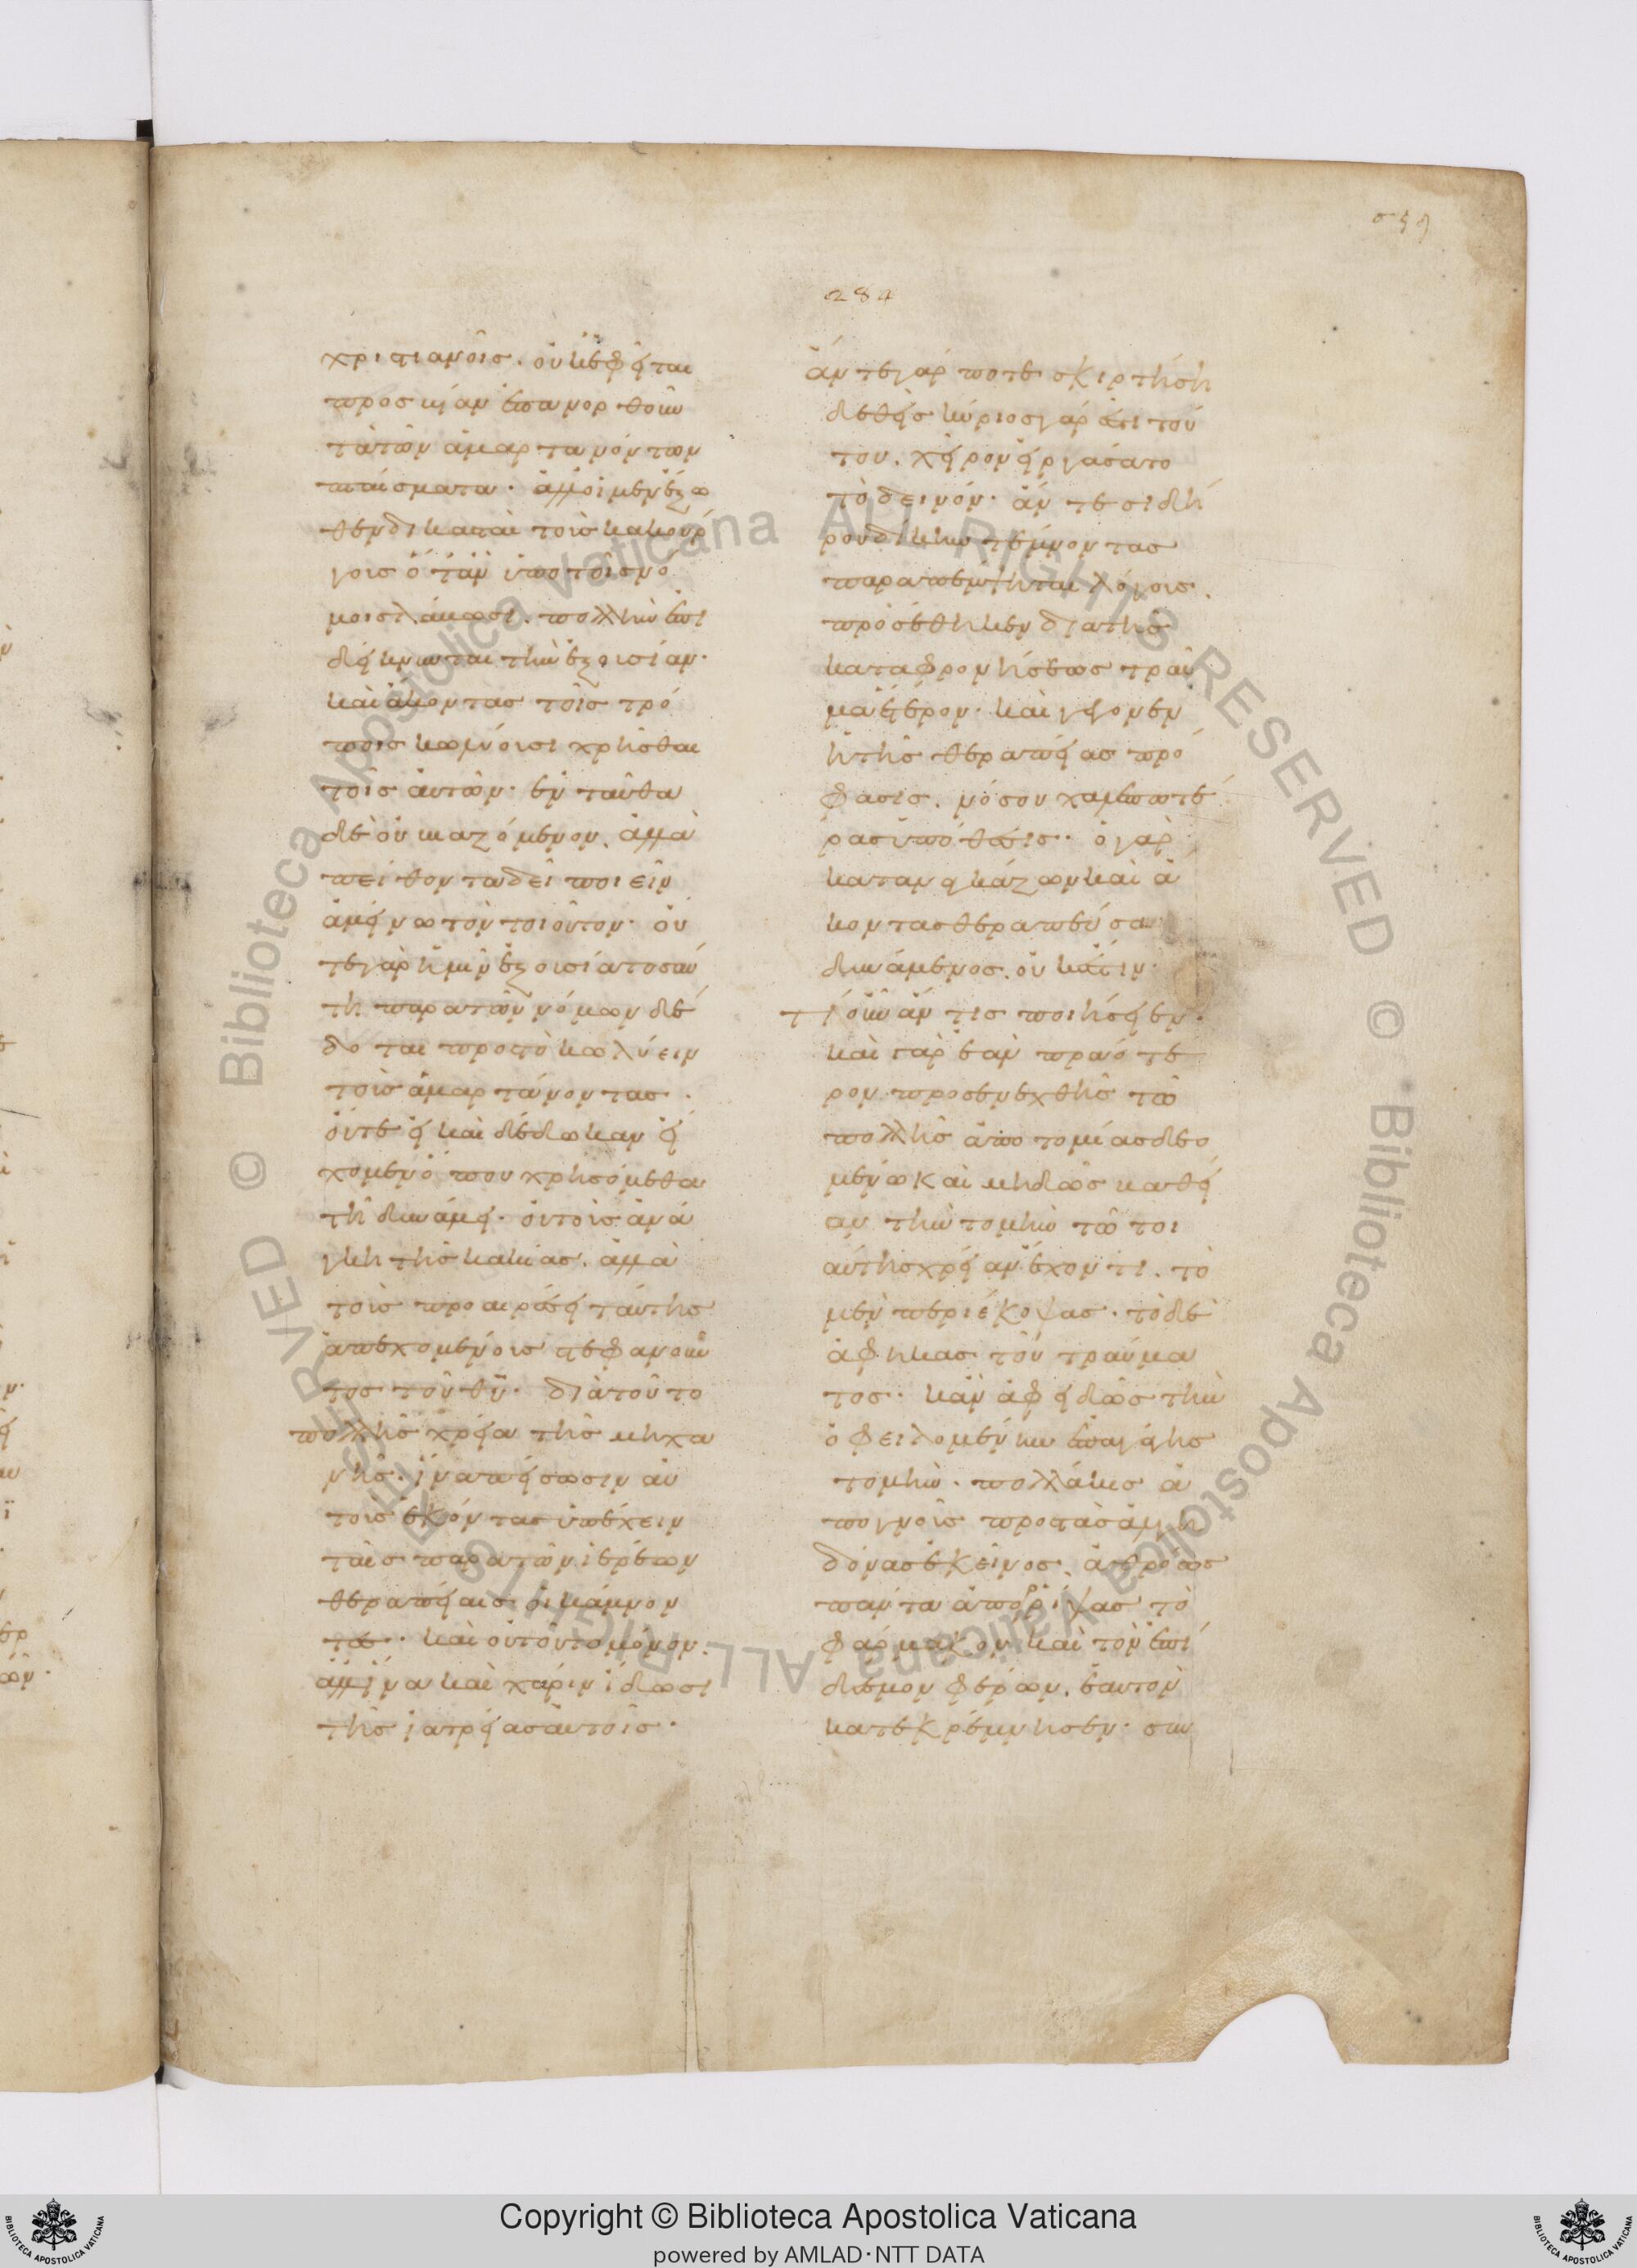 σξη
284
χριστιανοῖς. οὐκ ἐφεῖται
πρὸς βίαν ἐπανορθοῦν
τὰ τῶν ἁμαρτανόντων
πταίσματα. ἀλλ οἱ μὲν ἔξω
θεν δικασταὶ τοὺς κακούρ
γους ὅταν ὑπὸ τοῖς νό
μοις λάβωσι. πολλὴν ἐπι
δείκνυνται τὴν ἐξουσίαν.
καὶ ἄκοντας τοῖς τρό
ποις κωλύουσι χρῆσθαι
τοῖς αὐτῶν. ἐνταῦθα
δὲ οὐ βιαζόμενον. ἀλλὰ
πείθοντα δεῖ ποιεῖν
ἀμείνω τὸν τοιοῦτον. οὔ
τε γὰρ ἡμῖν ἐξουσία τοσαύ
τη παρὰ τῶν νόμων δέ
δοται πρὸς τὸ κωλύειν
τοὺς ἁμαρτάνοντας.
οὔτε εἰ καὶ δέδωκαν εἴ
χομεν ὅπου χρησόμεθα
τῇ δυνάμει. οὐ τοὺς ἀνά
γκη τῆς κακίας. ἀλλὰ
τοὺς προαιρέσει ταύτης
ἀπεχομένους στεφανοῦν
τος τοῦ θυ. διὰ τοῦτο
πολλῆς χρεία τῆς μηχα
νῆς. ἵνα πείσωσιν αὐ
τοὺς ἑκόντας ὑπέχειν
ταῖς παρὰ τῶν ἱερέων
θεραπείαις οἱ κάμνον
τες. καὶ οὐ τοῦτο μόνον.
ἀλλ ἵνα καὶ χάριν εἰδῶσι
τῆς ἰατρείας αὐτοῖς.
ἄν τε γάρ ποτε σκιρτήσῃ
δεθεὶς κύριος γάρ ἐστι τού
του. χεῖρον εἰργάσατο
τὸ δεινόν. ἄν τε σιδή
ρου δίκην τέμνοντας
παραπέμψηται λόγους.
προσέθηκεν διὰ τῆς
καταφρονήσεως τραῦ
μα ἕτερον. καὶ γέγονεν
ἡ τῆς θεραπείας πρό
φασις. νόσου χαλεπωτέ
ρας ὑπόθεσις. ὁ γὰρ
καταναγκάζων καὶ ἄ
κοντας θεραπεῦσαι
δυνάμενος. οὐκ ἔστιν.
τί οὖν ἄν τις ποιήσειεν.
καὶ γὰρ ἐὰν πραό τε
ρον προσενεχθῇς τῷ
πολλῆς ἀποτομίας δεο
μένῳ καὶ μὴ δῷς βαθεῖ
αν τὴν τομὴν τῷ τοι
αύτης χρείαν ἔχοντι. τὸ
μὲν περιέκοψας. τὸ δὲ
ἀφῆκας τοῦ τραύμα
τος. κἂν ἀφειδῶς τὴν
ὀφειλομένην ἐπαγάγῃς
τομὴν. πολλάκις ἀ
πογνοὺς πρὸς τὰς ἀλγη
δόνας ἐκεῖνος. ἀθρόως
πάντα ἀπορρίψας τὸ
φάρμακον καὶ τὸν ἐπί
δεσμον φέρων. ἑαυτὸν
κατεκρέμνησεν. συν
Copyright © Biblioteca Apostolica Vaticana
powered by AMLAD·NTT DATA